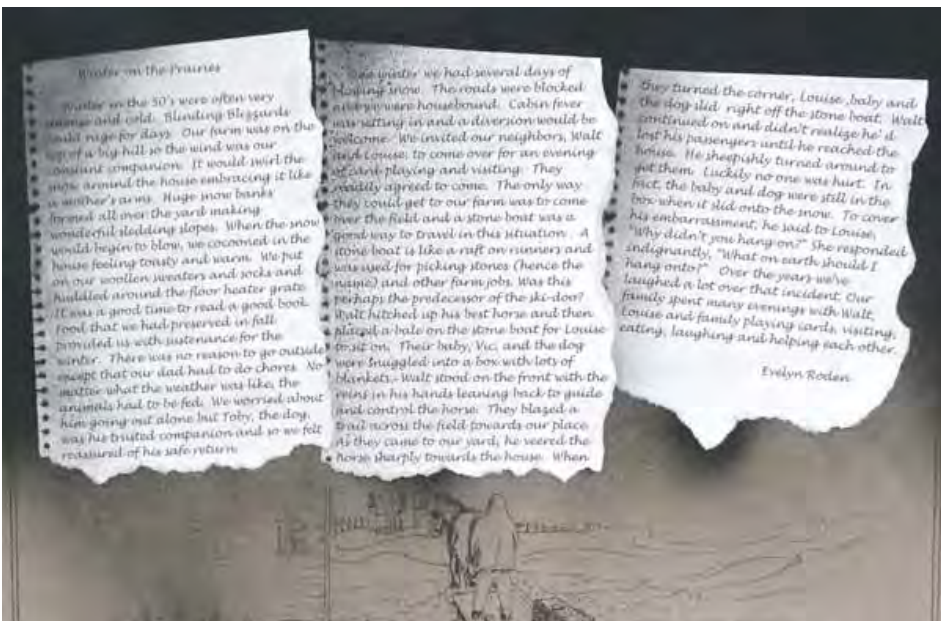 Winter on the Prairies
Winter in the 50's were often very
intense and cold. Blinding Blizzards
could rage for days. Our farm was on the
top of a big hill so the wind was our
constant companion. It would swirl the
snow around the house embracing it like
a mother's arms. Huge snow banks
formed all over the yard making
wonderful sledding slopes. When the snow
would begin to blow, we cocooned in the
house feeling toasty and warm. We put
on our woollen sweaters and socks and
huddled around the floor heater grate.
It was a good time to read a good book.
Food that we had preserved in fall
provided us with sustenance for the
winter. There was no reason to go outside
except that our dad had to do chores. No
matter what the weather was like, the
animals had to be fed. We worried about
him going out alone but Toby, the dog,
was his trusted companion and so we felt
reassured of his safe return.
One winter we had several days of
blowing snow. The roads were blocked
and we were housebound. Cabin fever
was setting in and a diversion would be
welcome. We invited our neighbors, Walt
and Louise, to come over for an evening
of card playing and visiting. They
readily agreed to come. The only way
they could get to our farm was to come
over the field and a stone boat was a
good way to travel in this situation. A
stone boat is like a raft on runners and
was used for picking stones (hence the
name) and other farm jobs. Was this
perhaps the predecessor of the ski-doo?
Walt hitched up his best horse and then
placed a bale on the stone boat for Louise
to sit on. Their baby, Vic, and the dog
were snuggled into a box with lots of
blankets. Walt stood on the front with the
reins in his hands leaning back to guide
and control the horse. They blazed a
trail across the field towards our place.
As they came to our yard, he veered the
horse sharply towards the house. When
they turned the corner, Louise, baby and
the dog slid right off the stone boat. Walt
continued on and didn't realize he'd
lost his passengers until he reached the
house. He sheepishly turned around to
get them. Luckily no one was hurt. In
fact, the baby and dog were still in the
box when it slid onto the snow. To cover
his embarrassment, he said to Louise,
"Why didn't you hang on?" She responded
indignantly, "What on earth should I
hang onto?" Over the years we've
laughed a lot over that incident. Our
family spent many evenings with Walt,
Louise and family playing cards, visiting,
eating, laughing and helping each other.
Evelyn Roden